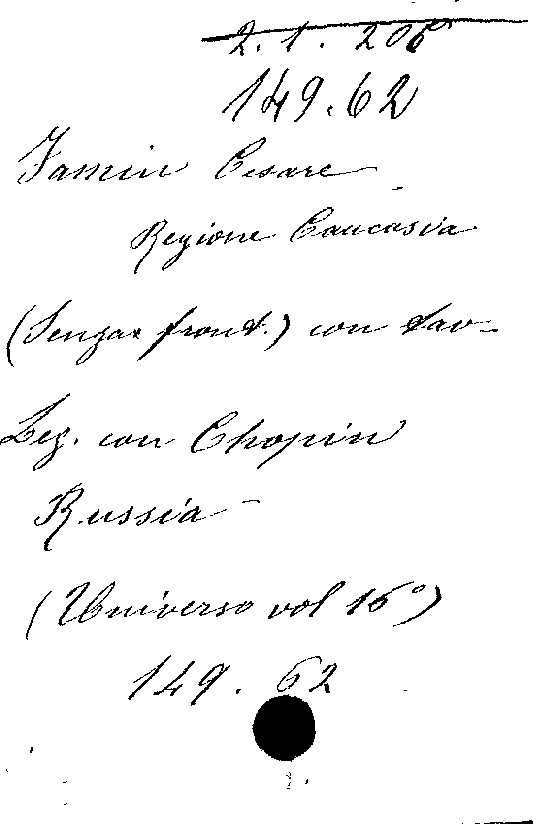 2. 1. 206
149.62
Famin Cesare
Regione Caucasia
(Senza front.) con tav-
Leg. con Chopin
Russia -
(Universo vol 16º)
149. 62